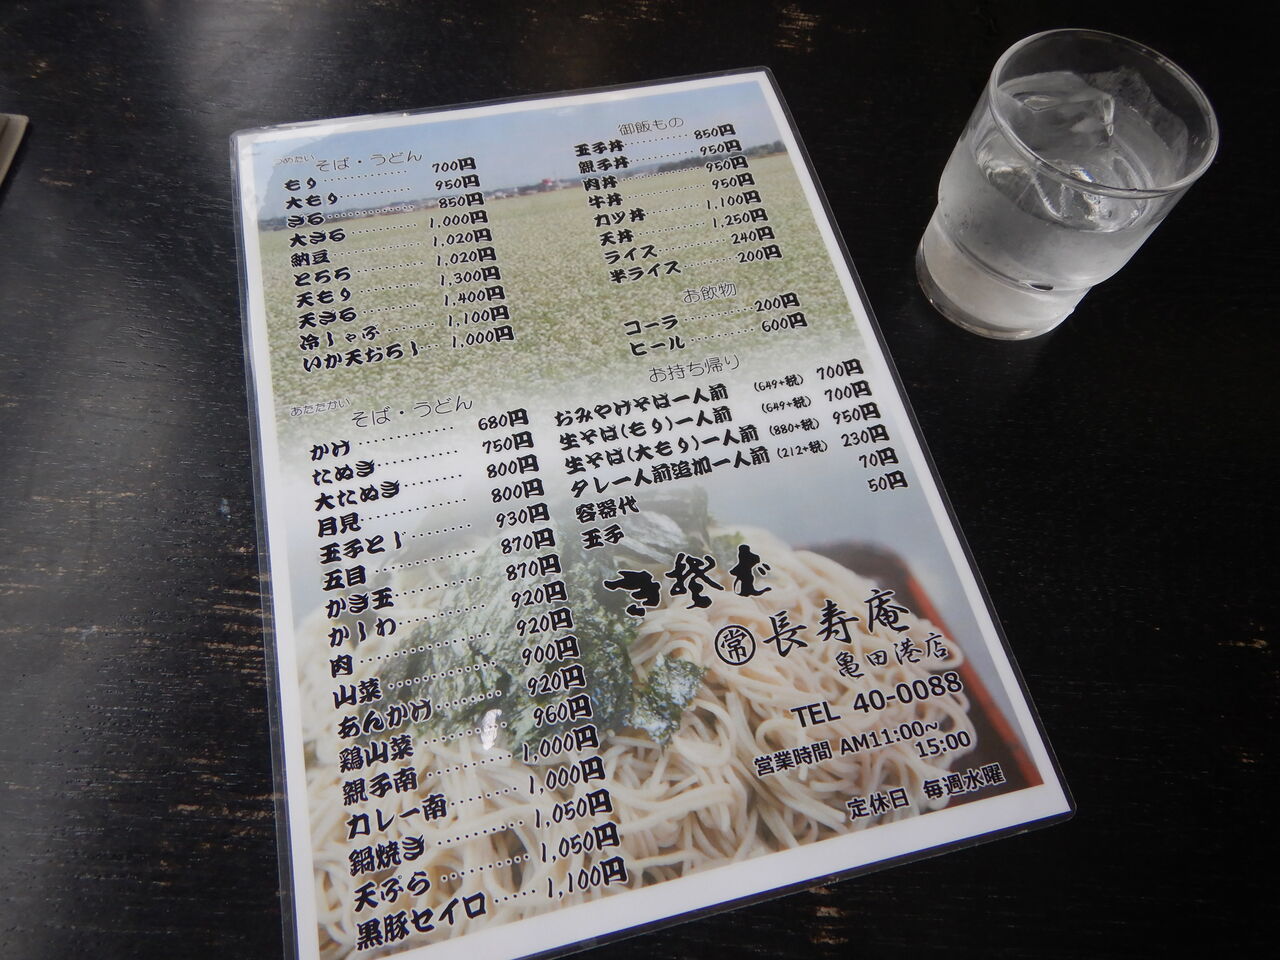 つめたい そば・うどん
もり 700円
大もり 950円
ざる 850円
大ざる 1,000円
納豆 1,020円
とろろ 1,020円
天もり 1,300円
天ざる 1,400円
冷しゃぶ 1,100円
いか天おろし 1,000円
あたたかい そば・うどん
かけ 680円
たぬき 750円
大たぬき 800円
月見 800円
玉子とじ 930円
五目 870円
かき玉 870円
かしわ 920円
肉 920円
山菜 900円
あんかけ 920円
鶏山菜 960円
親子南 1,000円
カレー南 1,000円
鍋焼き 1,050円
天ぷら 1,050円
黒豚セイロ 1,100円
御飯もの
玉子丼 850円
親子丼 950円
肉丼 950円
牛丼 950円
カツ丼 1,100円
天丼 1,250円
ライス 240円
半ライス 200円
お飲物
コーラ 200円
ビール 600円
お持ち帰り
おみやげそば一人前 (649+税) 700円
生そば(もり)一人前 (649+税) 700円
生そば(大もり)一人前 (880+税) 950円
タレ一人前追加一人前 (212+税) 230円
容器代 70円
玉子 50円
常 長寿庵
亀田港店
TEL 40-0088
営業時間 AM11:00~
15:00
定休日 毎週水曜